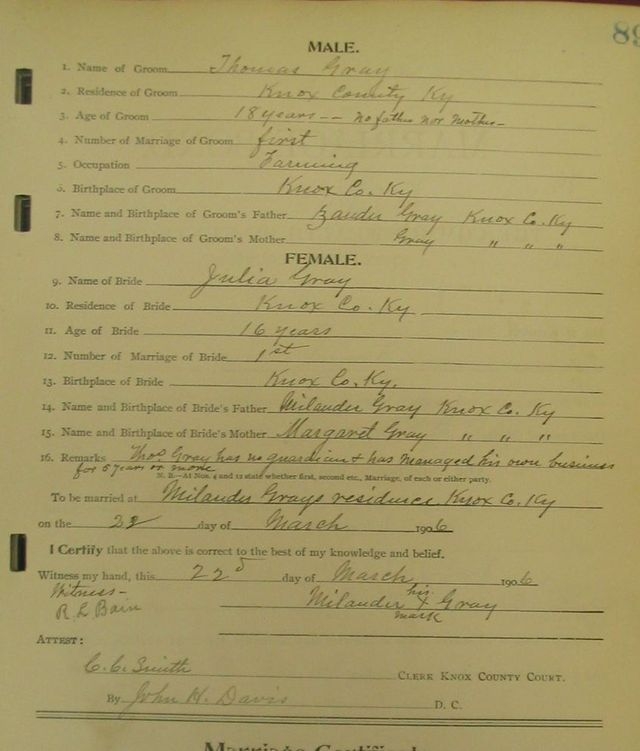 89
MALE.
1. Name of Groom Thomas Gray
2. Residence of Groom Knox County Ky
3. Age of Groom 18 years -- no father nor mother -
4. Number of Marriage of Groom first
5. Occupation Farming
6. Birthplace of Groom Knox Co. Ky
7. Name and Birthplace of Groom's Father Zander Gray Knox Co. Ky
8. Name and Birthplace of Groom's Mother Gray " " "
FEMALE.
9. Name of Bride Julia Gray
10. Residence of Bride Knox Co. Ky
11. Age of Bride 16 years
12. Number of Marriage of Bride 1st
13. Birthplace of Bride Knox Co. Ky.
14. Name and Birthplace of Bride's Father Milander Gray Knox Co. Ky
15. Name and Birthplace of Bride's Mother Margaret Gray " " "
16. Remarks Thos Gray has no guardian & has managed his own business
for 5 years or more
N. B.—At Nos. 4 and 12 state whether first, second etc., Marriage, of each or either party.
To be married at Milander Grays residence Knox Co. Ky
on the 22 day of March 1906
I Certify that the above is correct to the best of my knowledge and belief.
Witness my hand, this 22d day of March 1906
Witness - his
R. L. Bain Milander X Gray
mark
ATTEST:
C. C. Smith CLERK KNOX COUNTY COURT.
By John H. Davis D. C.